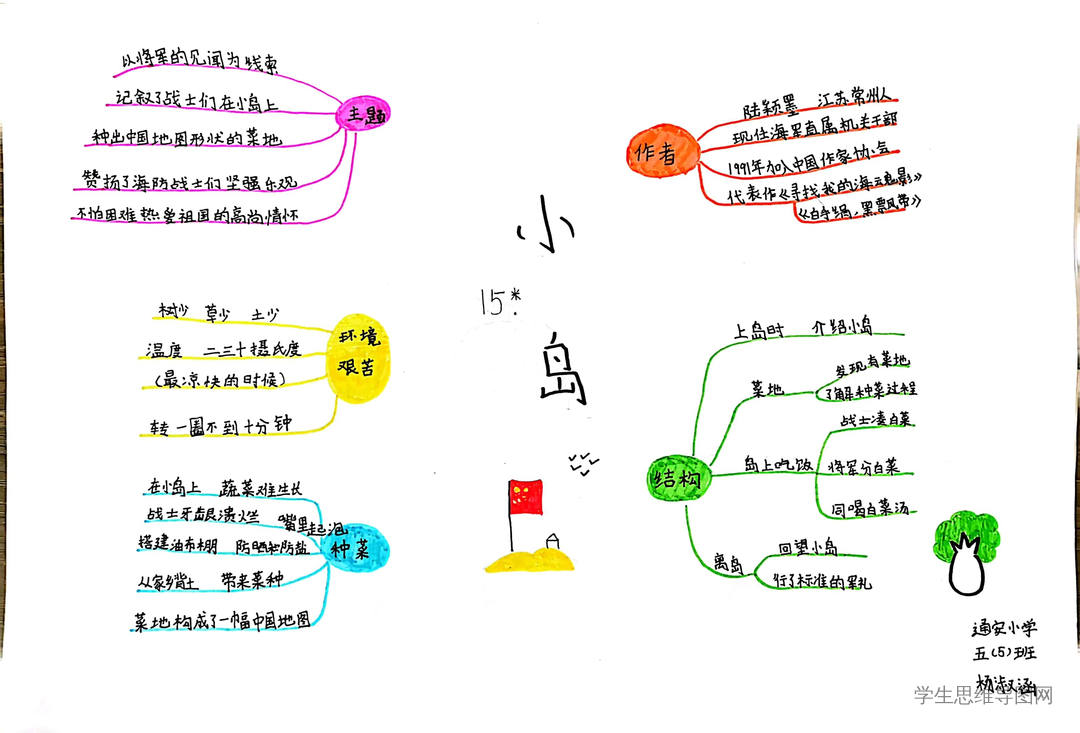 小
岛
15*
主题
以将军的见闻为线索
记叙了战士们在小岛上
种出中国地图形状的菜地
赞扬了海防战士们坚强乐观
不怕困难热爱祖国的高尚情怀
作者
陆颖墨 江苏常州人
现任海军直属机关干部
1991年加入中国作家协会
代表作《寻找我的海魂影》
《白手绢，黑飘带》
环境
艰苦
树少 草少 土少
温度 二三十摄氏度
(最凉快的时候)
转一圈不到十分钟
种菜
在小岛上 蔬菜难生长
战士牙龈溃烂 嘴里起泡
搭建油布棚 防晒和防盐
从家乡背土 带来菜种
菜地构成了一幅中国地图
结构
上岛时 介绍小岛
菜地
发现有菜地
了解种菜过程
岛上吃饭
战士凑白菜
将军分白菜
同喝白菜汤
离岛
回望小岛
行了标准的军礼
通安小学
五(5)班
杨淑涵
学生思维导图网